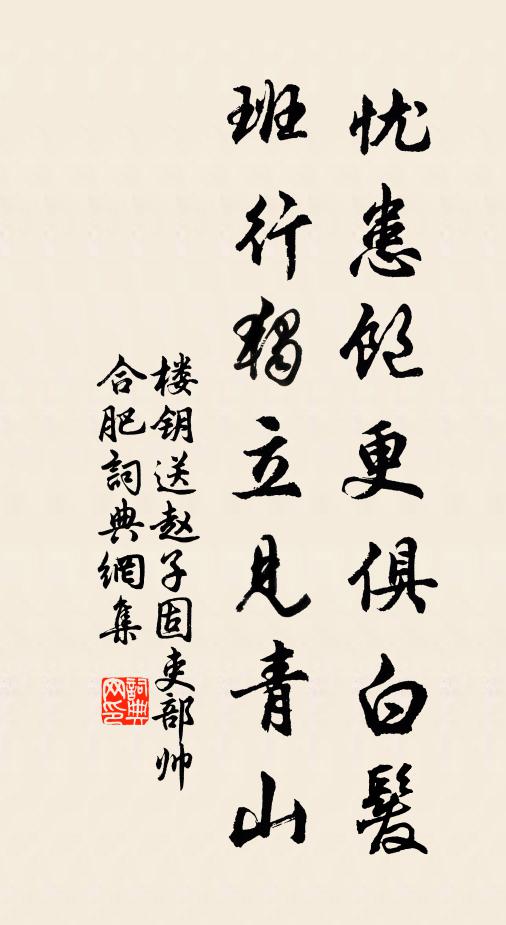 忧患饱更俱白髮
班行独立見青山
楼钥送赵子固吏部帅
合肥詞典網集
詞典
网印